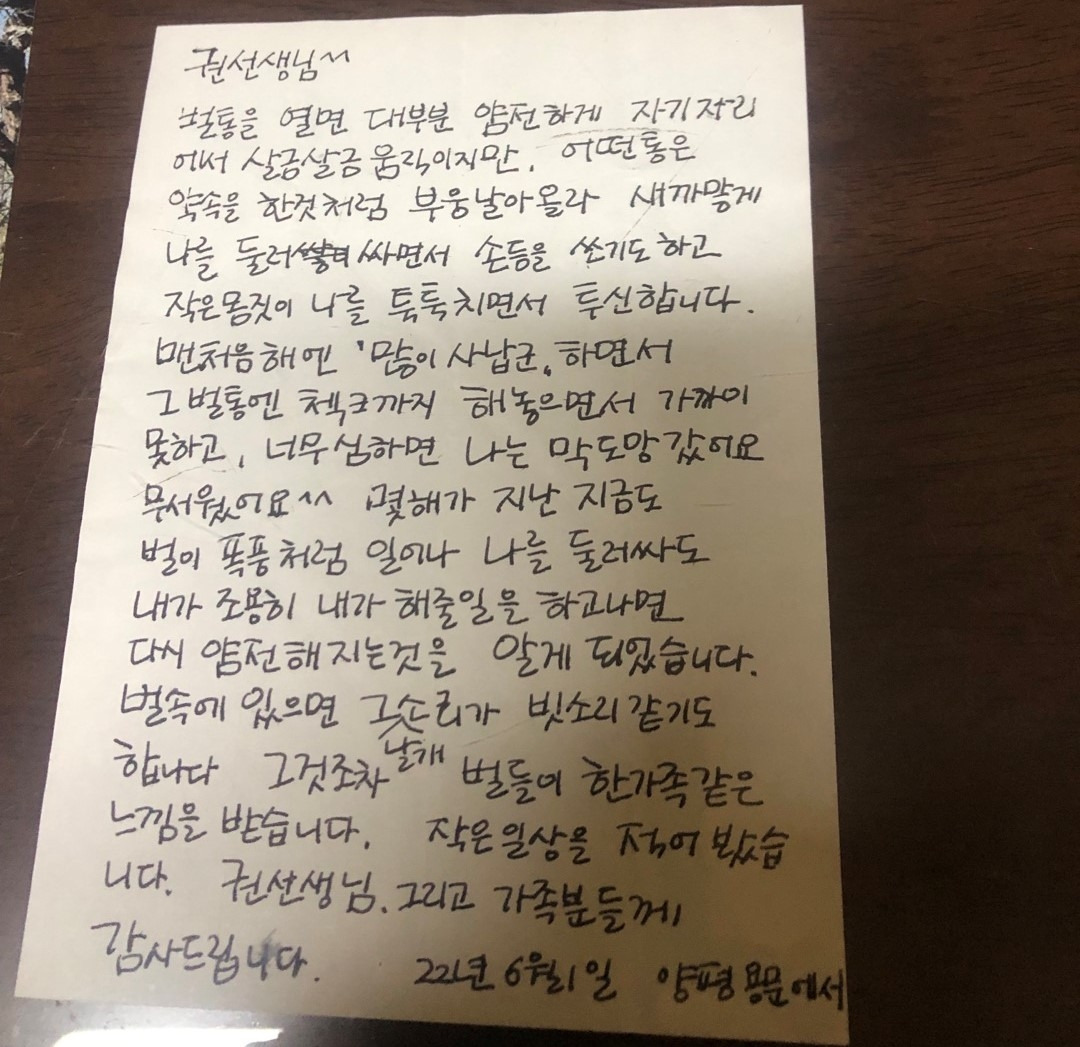 권선생님^^
벌통을 열면 대부분 얌전하게 자기자리
에서 살금살금 움직이지만, 어떤통은
약속을 한것처럼 부웅날아올라 새까맣게
나를 둘러 싸면서 손등을 쏘기도하고
작은몸짓이 나를 툭툭치면서 투신합니다.
맨처음해엔 '많이사납군, 하면서
그벌통엔 첵크까지 해놓으면서 가까이
못하고, 너무심하면 나는 막도망갔어요
무서웠어요^^ 몇해가 지난 지금도
벌이 폭풍처럼 일어나 나를 둘러싸도
내가 조용히 내가 해줄일을 하고나면
다시 얌전해지는것을 알게 되었습니다.
벌속에 있으면 그 소리가 빗소리같기도
합니다 그것조차 날개 벌들이 한가족같은
느낌을 받습니다. 작은일상을 적어봤습
니다. 권선생님. 그리고 가족분들께
감사드립니다. 22년 6월1일 양평용문에서